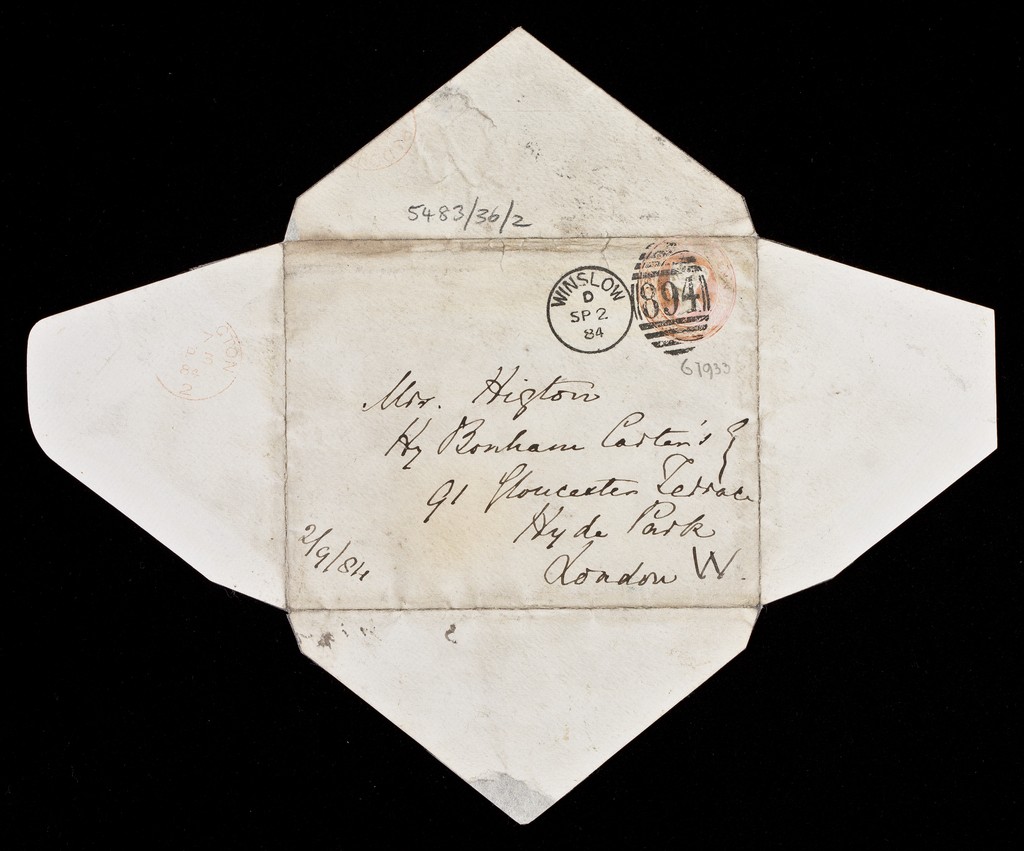 5483/36/2
WINSLOW
D
SP 2
84
894
67933
Mr. Higton
Hy Bonham Carter's
91 Gloucester Terrace
Hyde Park
London W.
2/9/84
CTON